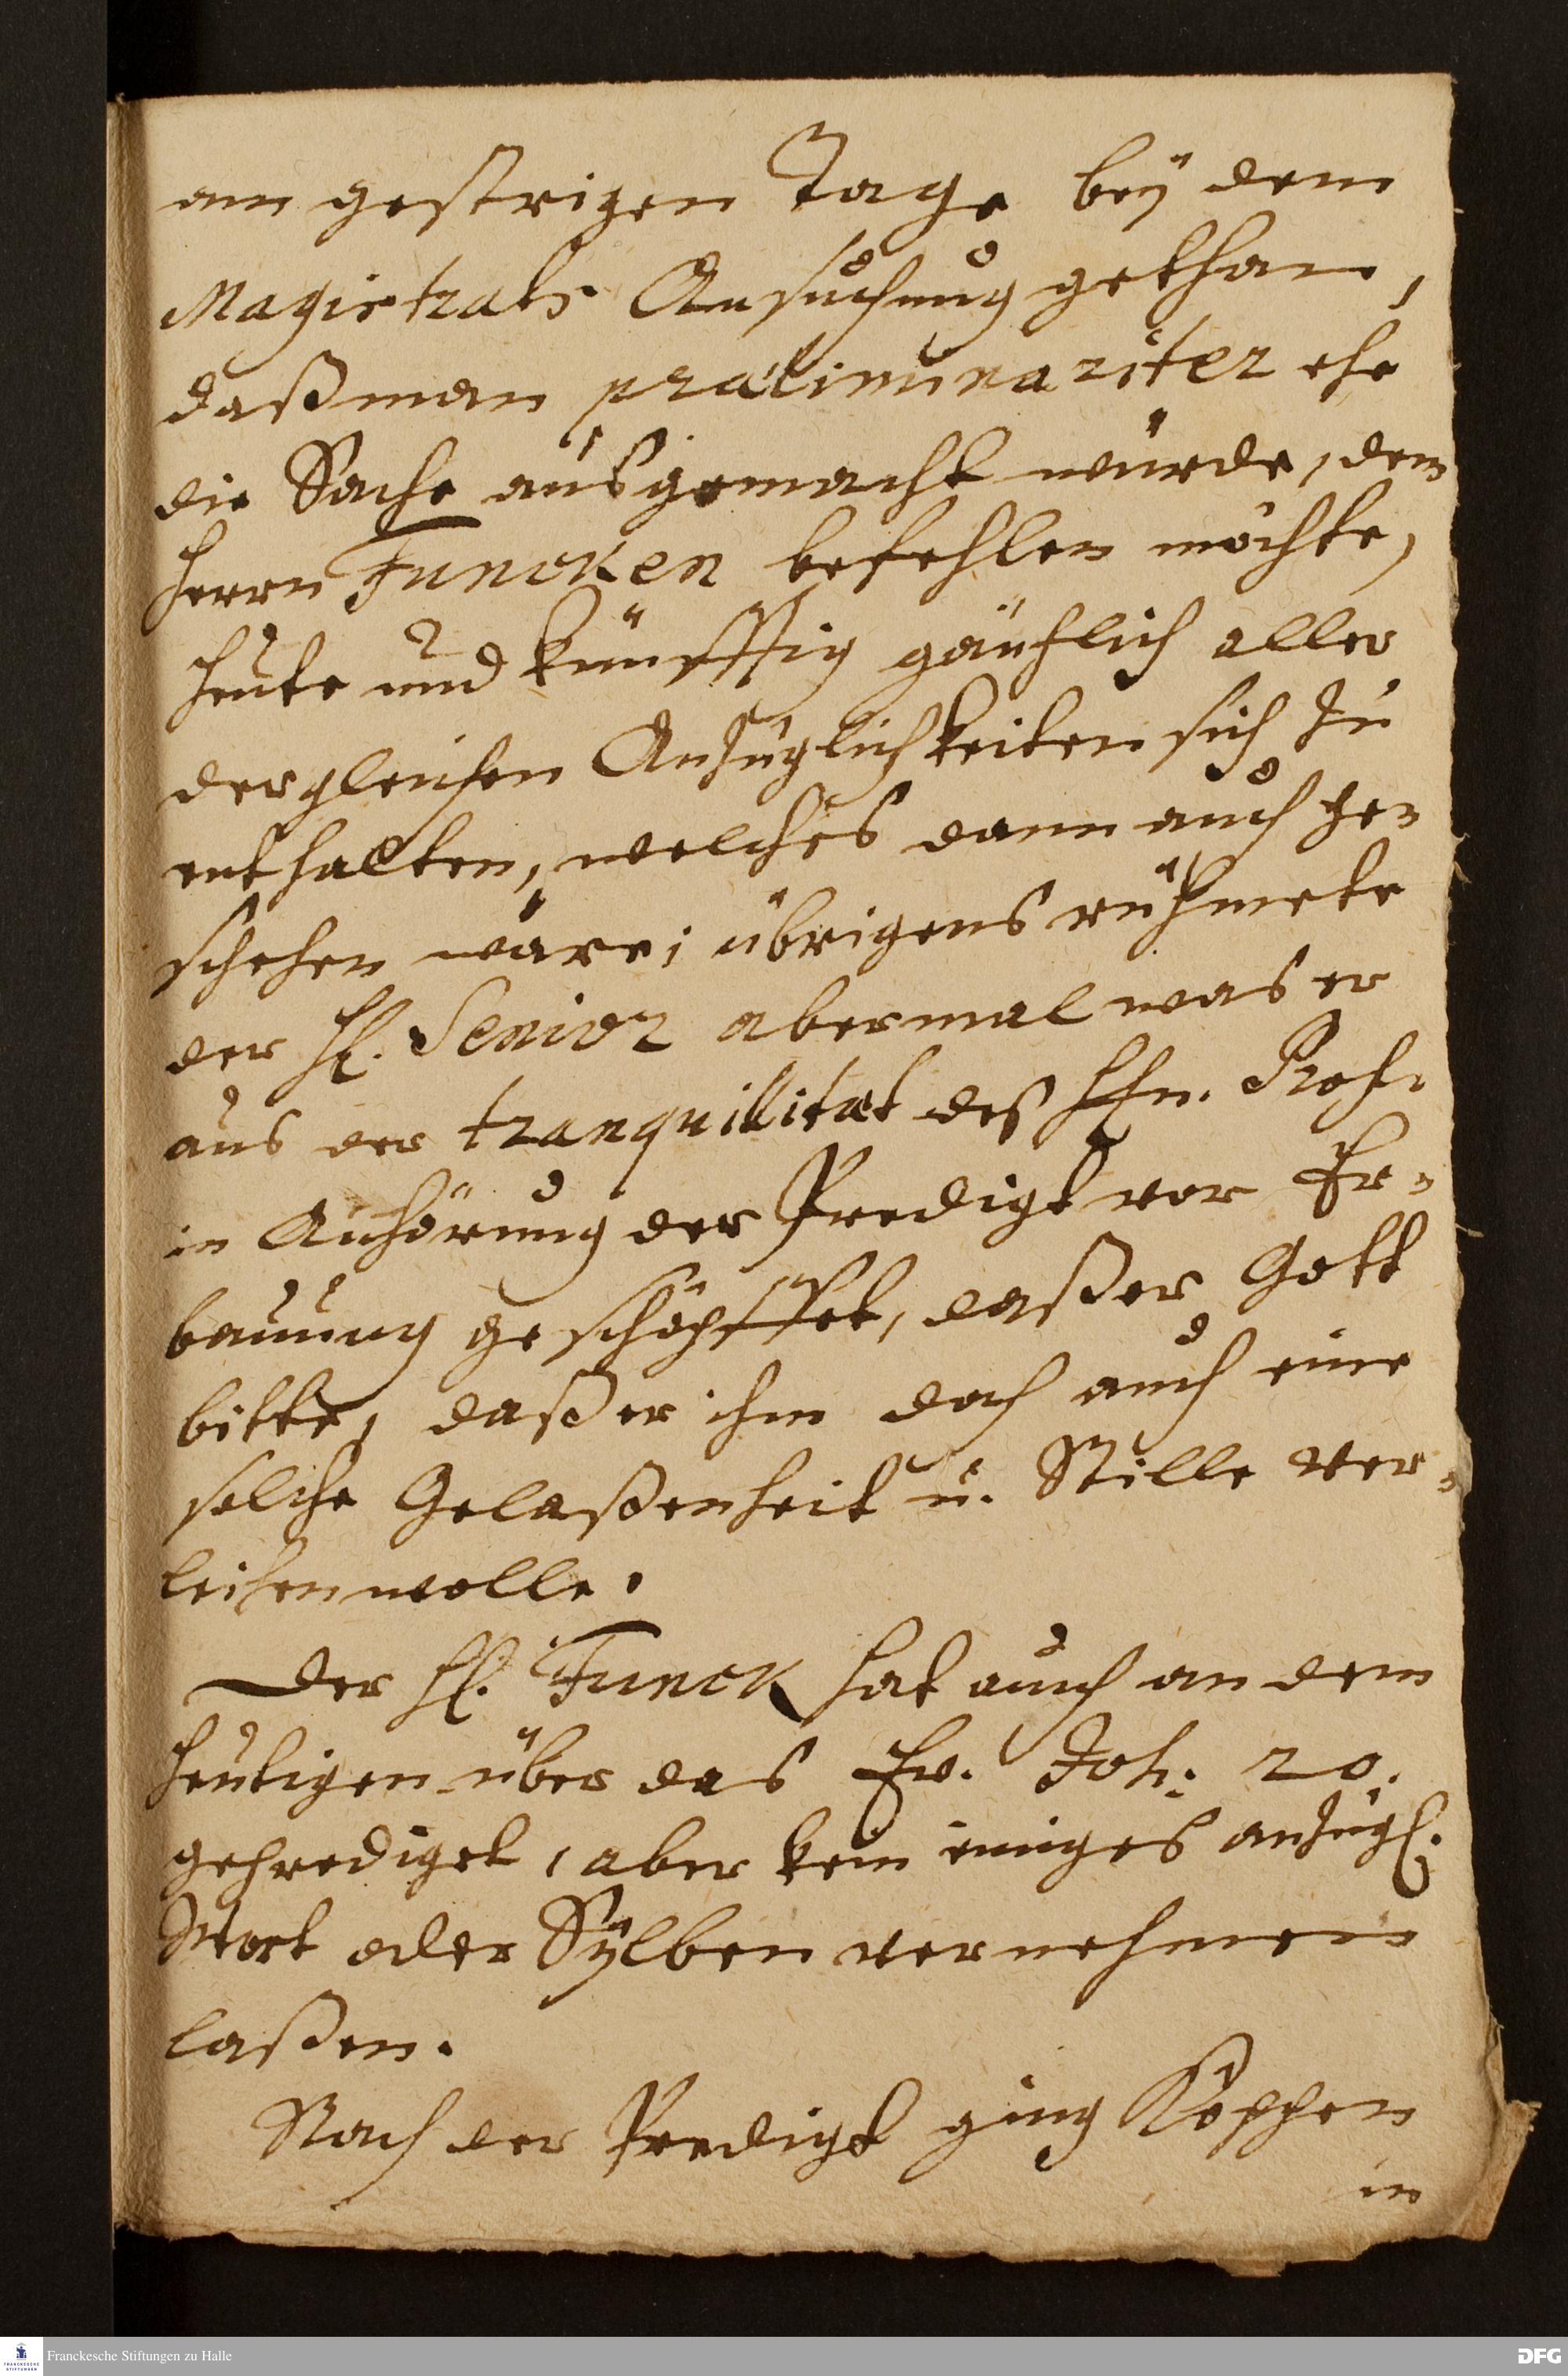 am gestrigen Tage bey dem
Magistrats Ansuchung gethan,
daß man præliminariter ehe
die Sache ausgemacht würde, dem
Herrn Funcken befehlen möchte,
heute und künfftig gäntzlich aller
dergleichen Anzüglichkeiten sich zu
enthalten, welches dann auch ge-
schehen wäre; übrigens rühmete
der H. Senior abermal was er
aus der tranquillitæt des Hhn. Prof.
in Anhörung der Predigt vor Er-
bauung geschöpffet, daß er Gott
bitte, daß er ihm doch auch eine
solche Gelaßenheit u. Stille ver-
leihen wolle.
Der H. Funck hat auch an dem
heutigen über das Ev. Joh. 20.
geprediget, aber kein einiges anzügl.
Wort oder Sylben vernehmen
laßen.
Nach der Predigt ging Köppen
in
Franckesche Stiftungen zu Halle
DFG